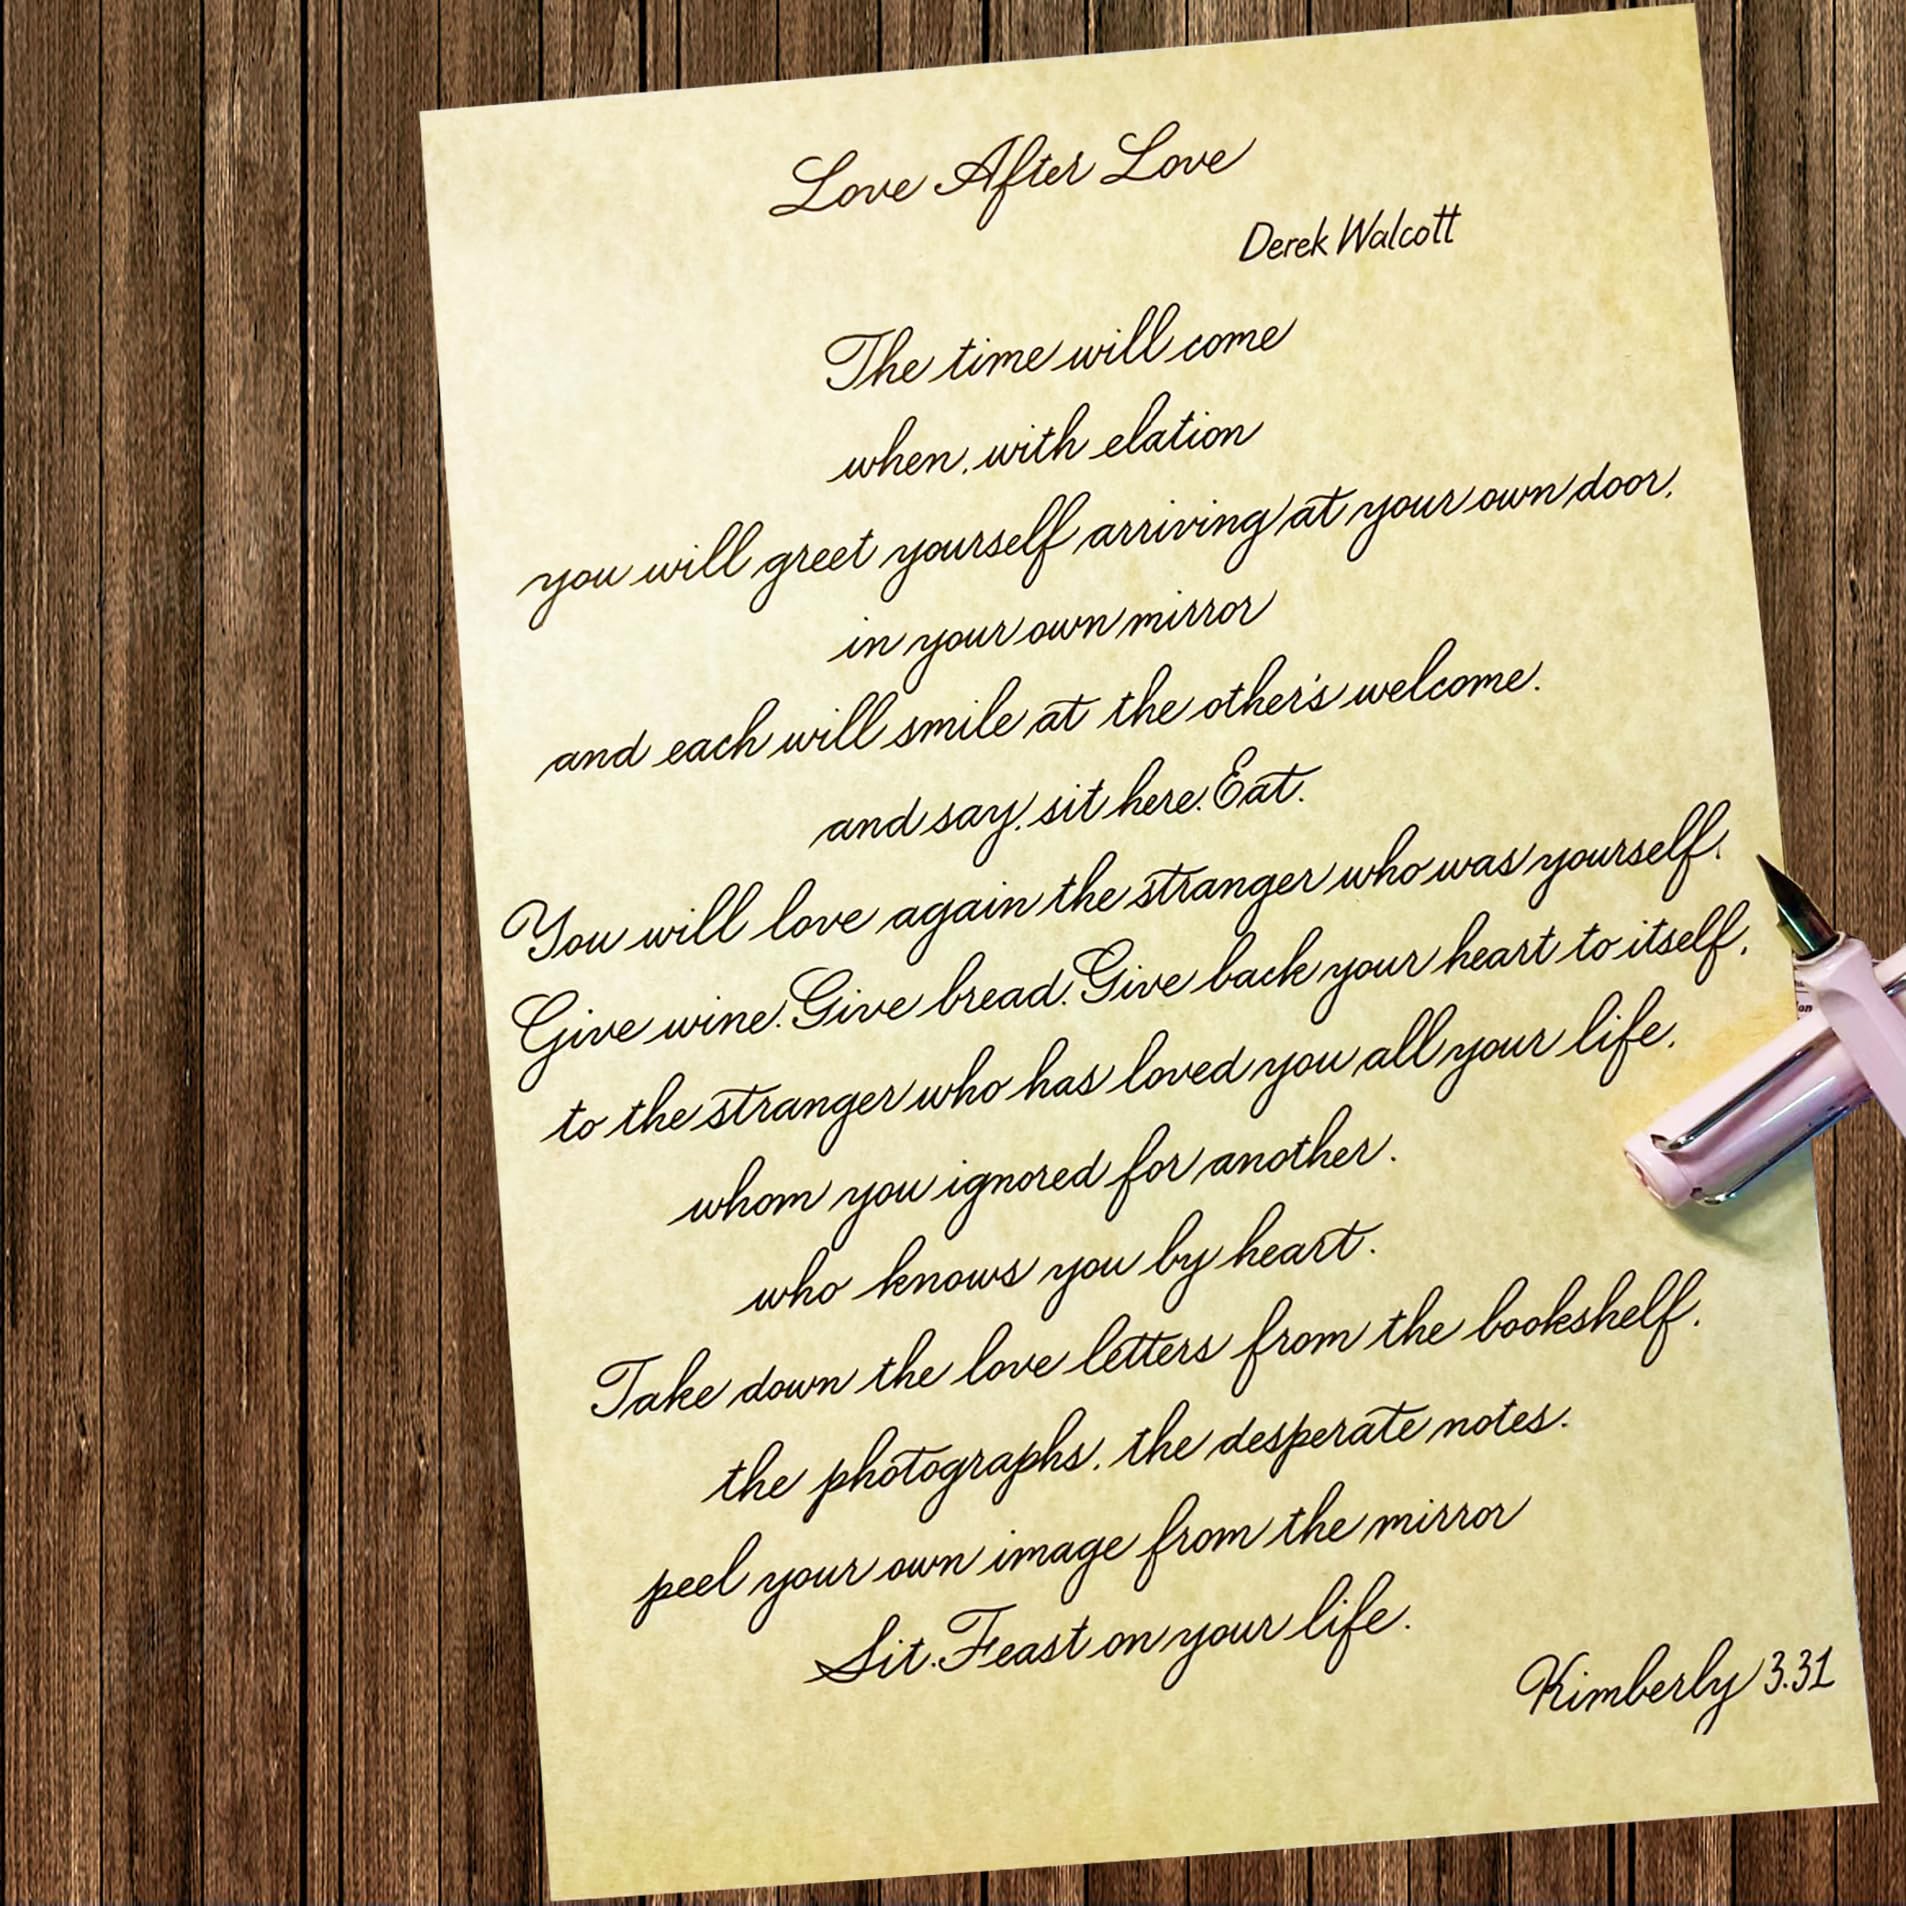 Love After Love
Derek Walcott
The time will come
when, with elation
you will greet yourself arriving at your own door,
in your own mirror
and each will smile at the other's welcome.
and say, sit here. Eat.
You will love again the stranger who was yourself.
Give wine. Give bread. Give back your heart to itself,
to the stranger who has loved you all your life.
whom you ignored for another.
who knows you by heart.
Take down the love letters from the bookshelf.
the photographs, the desperate notes.
peel your own image from the mirror
Sit. Feast on your life.
Kimberly 3.31